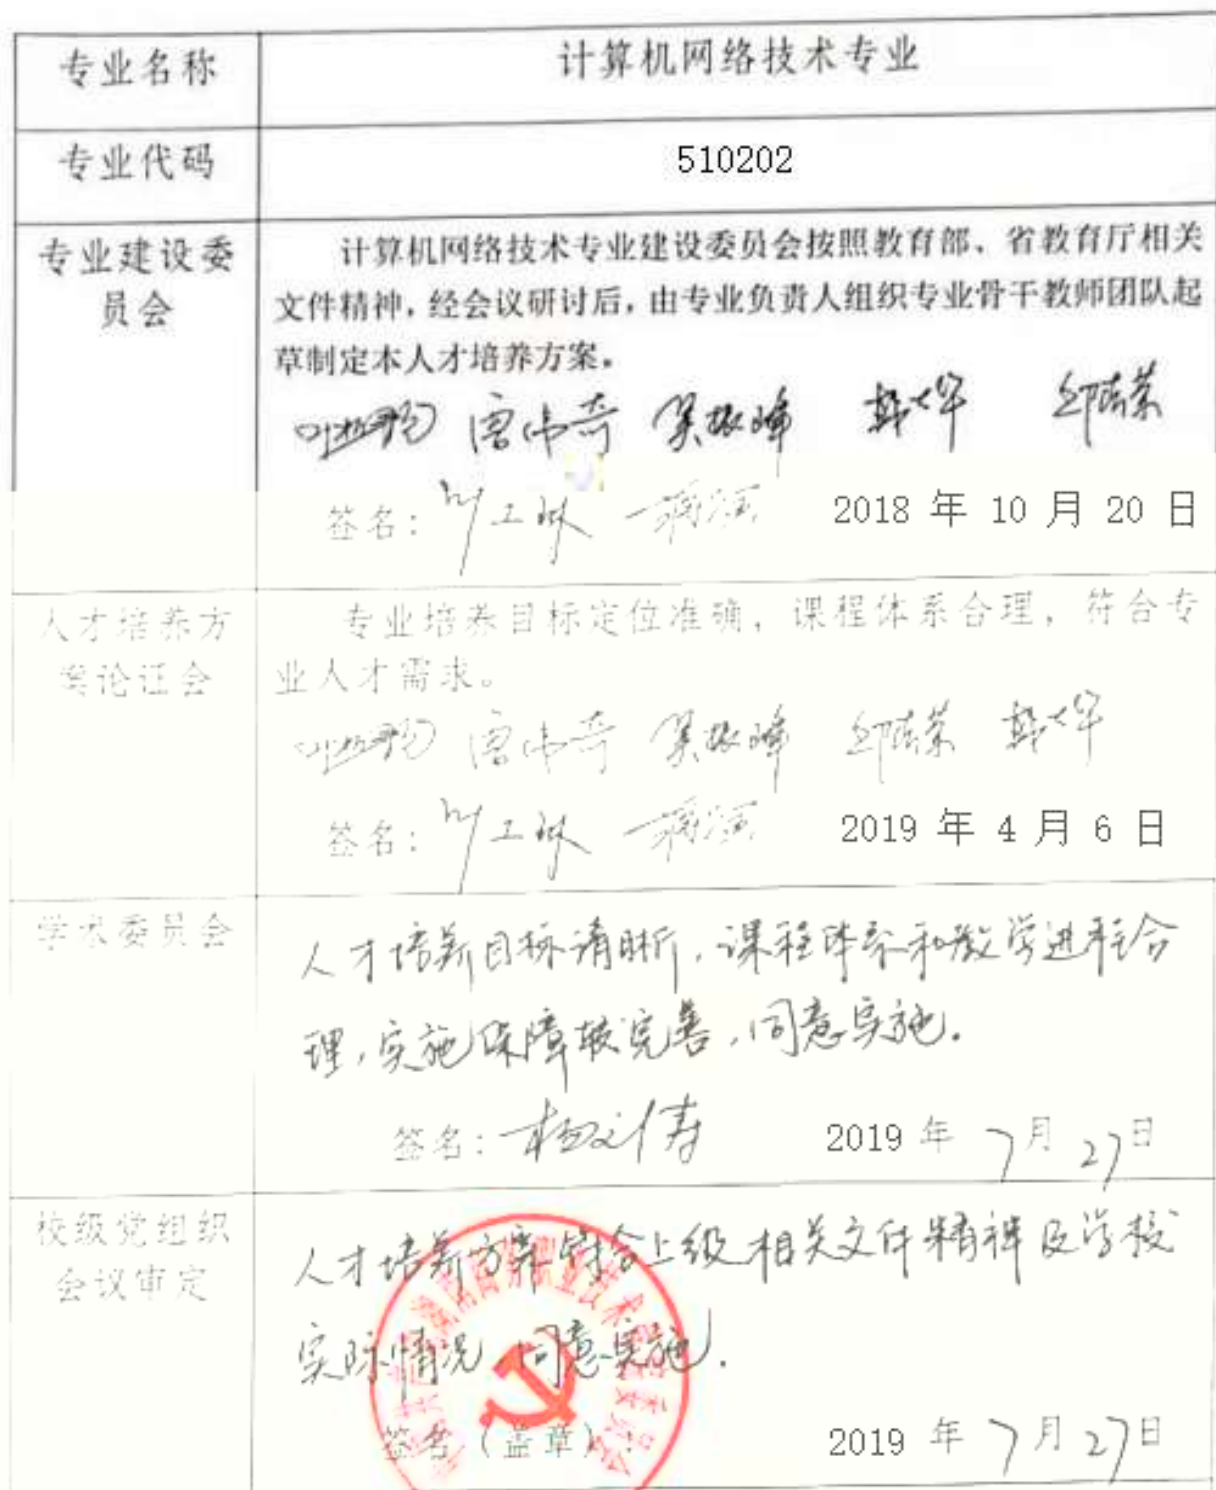 专业名称
计算机网络技术专业
专业代码
510202
专业建设委
员会
计算机网络技术专业建设委员会按照教育部、省教育厅相关
文件精神，经会议研讨后，由专业负责人组织专业骨干教师团队起
草制定本人才培养方案。
唐伟奇 吴振峰
签名： 2018 年 10 月 20 日
人才培养方
案论证会
专业培养目标定位准确，课程体系合理，符合专
业人才需求。
唐伟奇 吴振峰
签名： 2019 年 4 月 6 日
学术委员会
人才培养目标清晰，课程体系和教学进程合
理，实施保障较完善，同意实施。
签名： 2019 年 7 月 27 日
校级党组织
会议审定
人才培养方案符合上级相关文件精神及学校
实际情况，同意实施。
签名（盖章） 2019 年 7 月 27 日